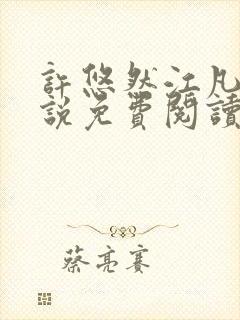 許悠然江凡
說免費閱讀
蔡亮賽